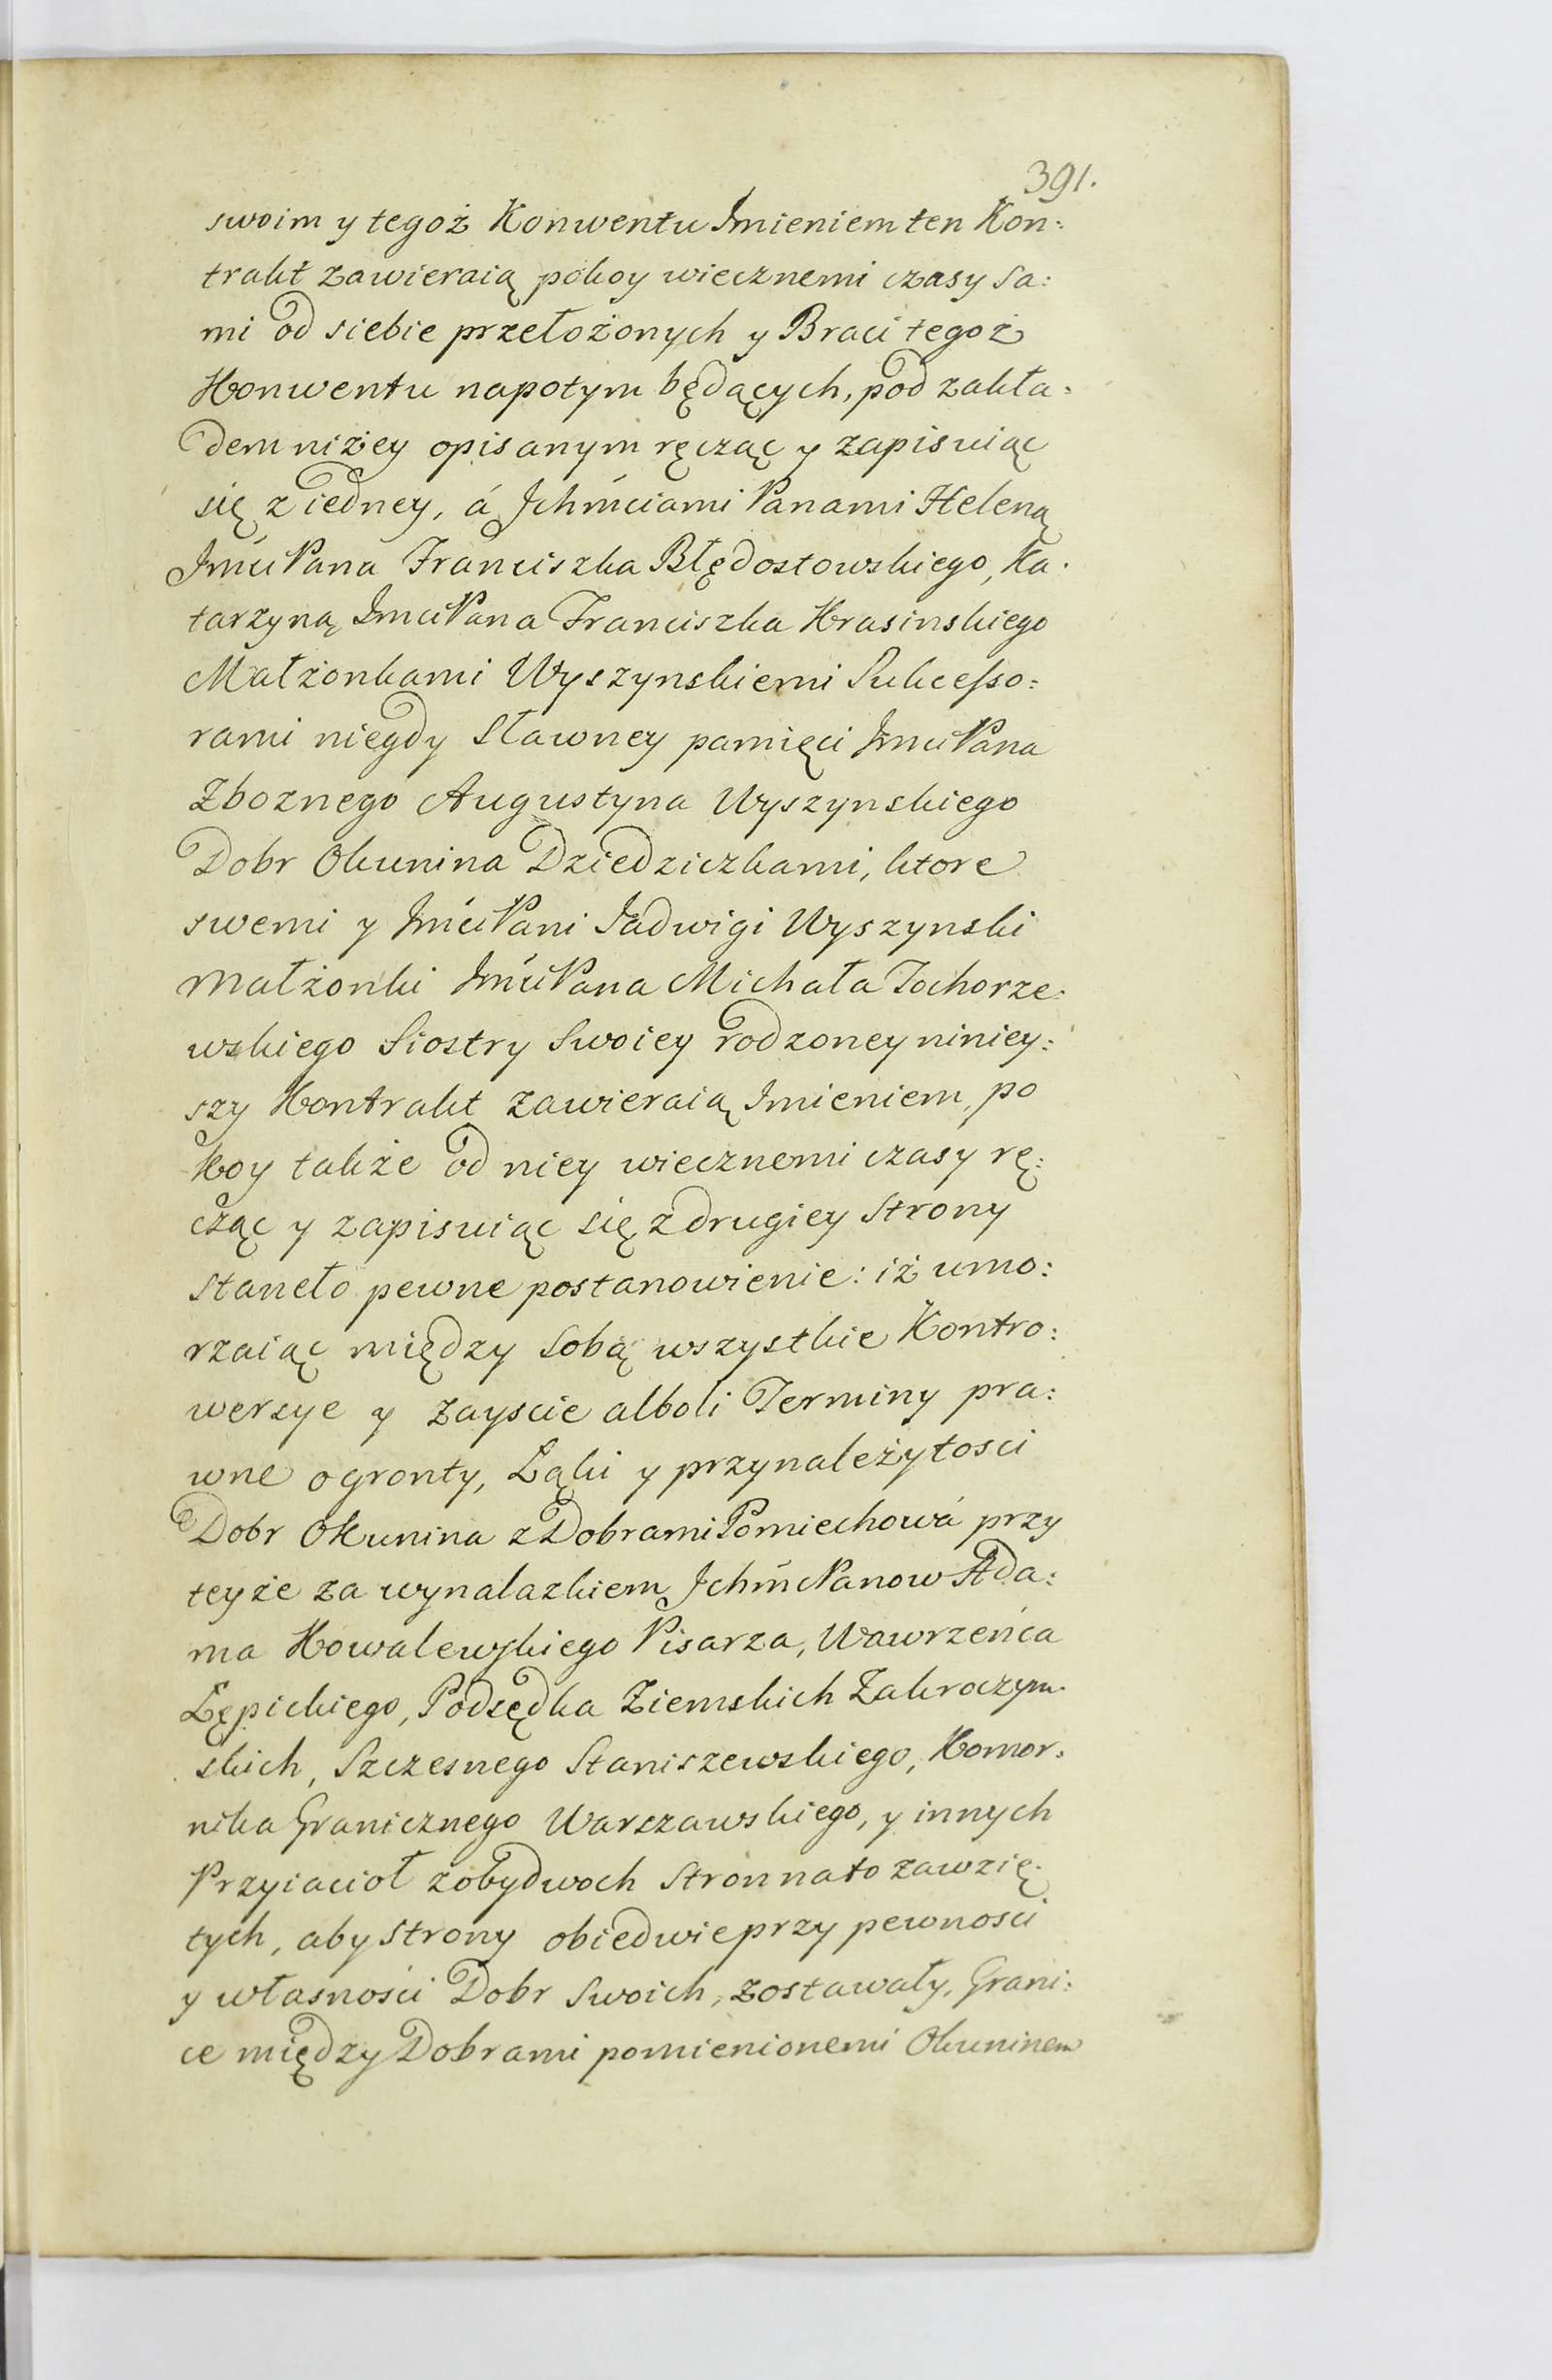 391.
swoim y tegoż Konwentu Jmieniem ten Kon:
trakt zawieraią pokoy wiecznemi czasy sa:
mi od siebie przełożonych y Braci tegoż
Konwentu napotym będących, pod zakła:
dem niżey opisanym ręcząc y zapisuiąc
się z iedney, á Jchmciami Panami Heleną
Jmci Pana Franciszka Błędostowskiego, Ka:
tarzyną Jmci Pana Franciszka Krasinskiego
Małżonkami Wyszynskiemi Sukcesso:
rami niegdy Sławney pamięci Jmci Pana
Zboznego Augustyna Wyszynskiego
Dobr Okunina Dziedziczkami, ktore
swemi y Jmci Pani Jadwigi Wyszynski
Małżonki Jmci Pana Michała Tochorze:
wskiego Siostry Swoiey rodzoney niniey:
szy Kontrakt zawieraią Jmieniem, po
koy także od niey wiecznemi czasy rę:
cząc y zapisuiąc się z drugiey Strony
Staneło pewne postanowienie: iż umo:
rzaiąc między Sobą wszystkie Kontro:
wersye y zayscie alboli Terminy pra:
wne o gronty, Łąki y przynależytosci
Dobr Okunina z Dobrami Pomiechowá przy
teyże za wynalazkiem Jchmć Panow Ada:
ma Kowalewskiego Pisarza, Wawrzeńca
Łępickiego, Podsędka Ziemskich Zakroczym:
skich, Szczesnego Staniszewskiego, Komor:
nika Granicznego Warszawskiego, y innych
Przyiacioł z obydwoch Stron na to zawzię:
tych, aby Strony obiedwie przy pewnosci
y własności Dobr Swoich, zostawały, Grani:
ce między Dobrami pomienionemi Okuninem